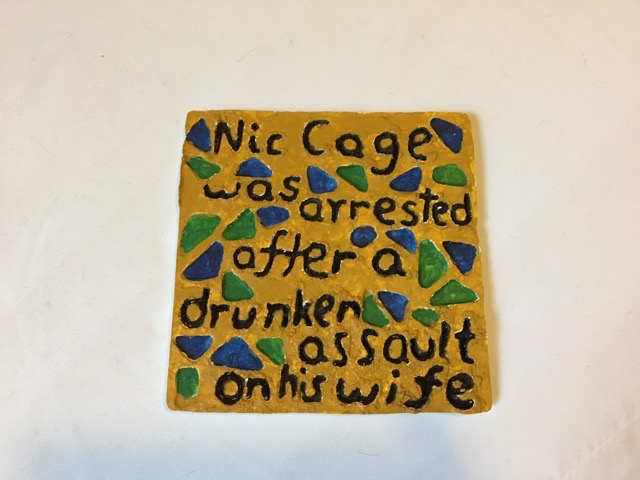 Nic Cage
was arrested
after a
drunken
assault
on his wife